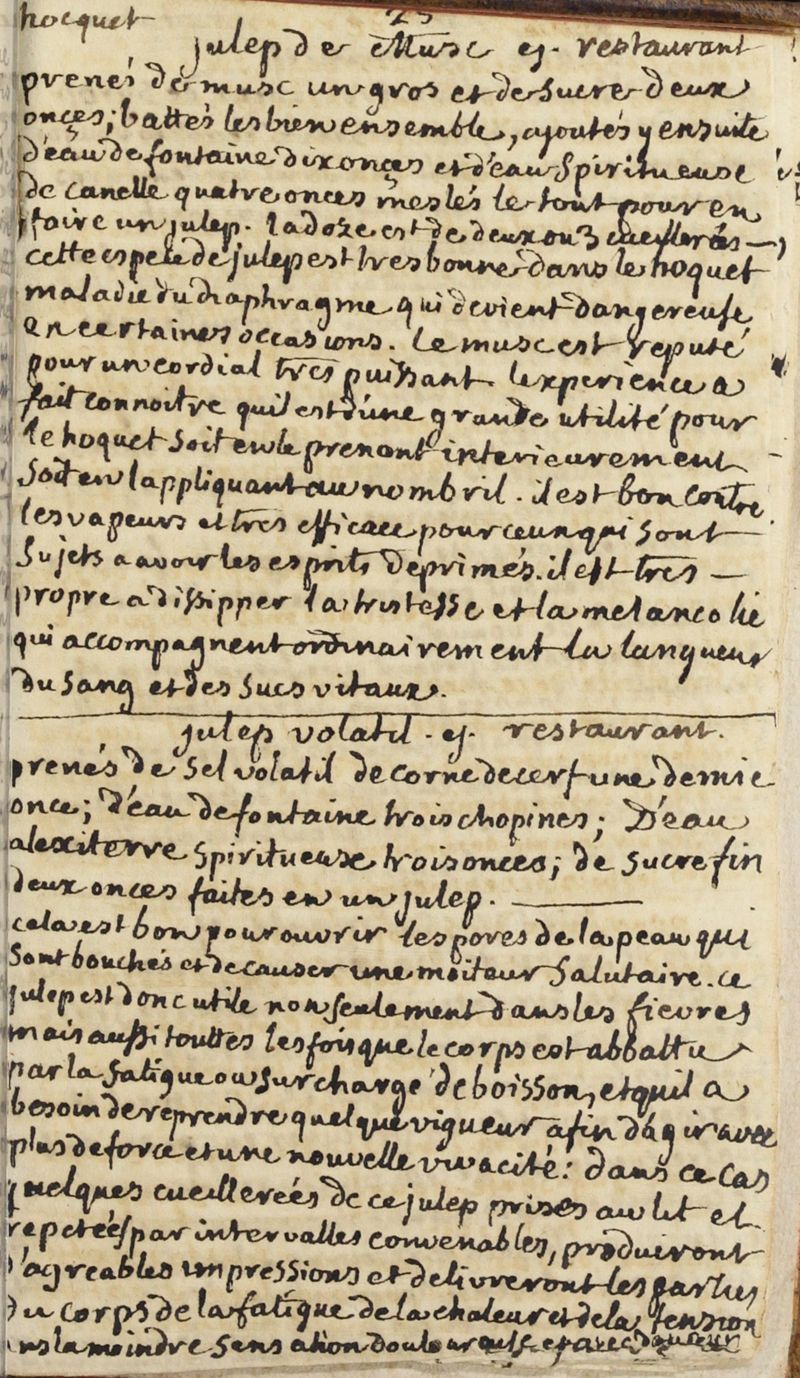 23
hocquet
julep de Musc ej. restaurant
prenés de musc un gros et de sucre deux
onces; battés les bien ensemble, ajoutés y ensuite
d'eau de fontaine dix onces et d'eau spiritueuse
de canelle quatre onces meslés le tout pour en
faire un julep. la doze est de deux ou 3 cueillerés
cette espece de julep est tres bonne dans le hoquet
maladie du diaphragme qui devient dangereuse
en certaines occasions. le musc est reputé
pour un cordial très puissant l'experience a
fait connoitre qu'il est d'une grande utilité pour
le hoquet soit en le prenant interieurement
soit en l'appliquant au nombril. il est bon contre
les vapeurs et tres efficace pour ceux qui sont
sujets a avoir les esprits deprimés. il est tres
propre a dissipper la tristesse et la melancolie
qui accompagnent ordinairement la langueur
du sang et des sucs vitaux.
julep volatil. ej. restaurant.
prenés de sel volatil de corne de cerf une demie
once; d'eau de fontaine trois chopines; D'eau
alexiterre spiritueuse trois onces; de sucre fin
deux onces faites en un julep.
cela est bon pour ouvrir les pores de la peau qui
sont bouchés et de causer une moiteur salutaire. ce
julep est donc utile non seulement dans les fievres
mais aussi touttes les fois que le corps est abbattu
par la fatigue ou surchargé de boisson, et qu'il a
besoin de reprendre quelque vigueur afin d'agir avec
plus de force et une nouvelle vivacité: dans ce cas
quelques cueillereés de ce julep prises au lit et
repeteés par intervalles convenables, produiront
d'agreables impressions et delivreront les parties
du corps de la fatigue de la chaleur et de la tension
la moindre sensation douloureuse et avec douceur